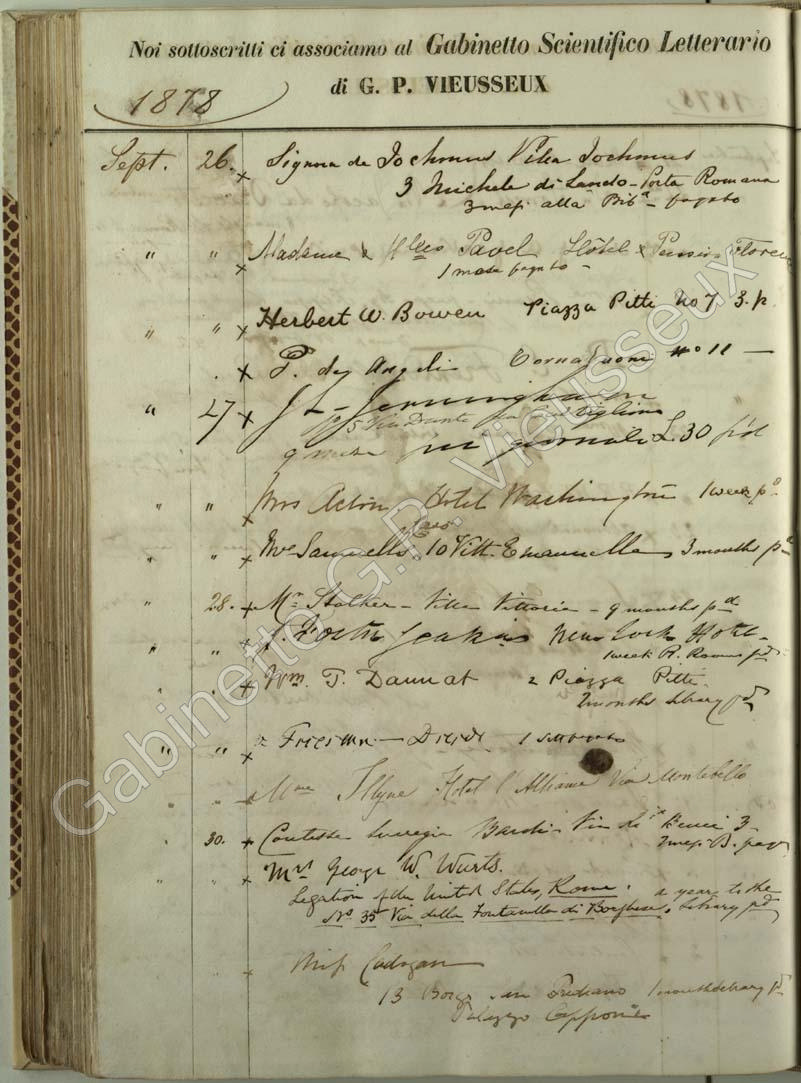 Noi sottoscritti ci associamo al Gabinetto Scientifico Letterario
di G. P. VIEUSSEUX
1878
Sept. 26. x Signora de Jochmus Villa Jochmus
3 Michele di Lando - Porta Romana
3 mesi alla Bib.a - pagato
" " x Madame & Mlles Pavel Hôtel & Pension Florence
1 mese pagato -
" " x Herbert W. Bowen Piazza Pitti No 7 3. p.
. x P. de Angeli Tornabuoni no 11 —
" 27 x J L - Jerningham
No 5 Via Dante
giornali L. 30
" " x Mrs Acton Hotel Washington 1 week pd
" " x 10 Vitt. Emanuelle 3 months pd
" 28. x Mr Stalker - Villa Vittoria - 9 months pd
" " x New York Hotel -
1 week R. Rooms pd
" . x Wm. T. Dannat 2 Piazza Pitti.
2 months library pd
" " x 1
" " x Mme Illyne Hotel l'Alliance Via Montebello
. 30. x Contessa Lucrezia Bardi Via de' Benci 3 -
2 mesi B. pag.
" " x Mrs George W. Wurts.
Legation of the United States, Rome. a year to the
No 35 Via della Fontanella di Borghese. Library pd
x Miss Cadogan
13 Borgo San Frediano 1 month library pd
Palazzo Capponi
Gabinetto G.P. Vieusseux